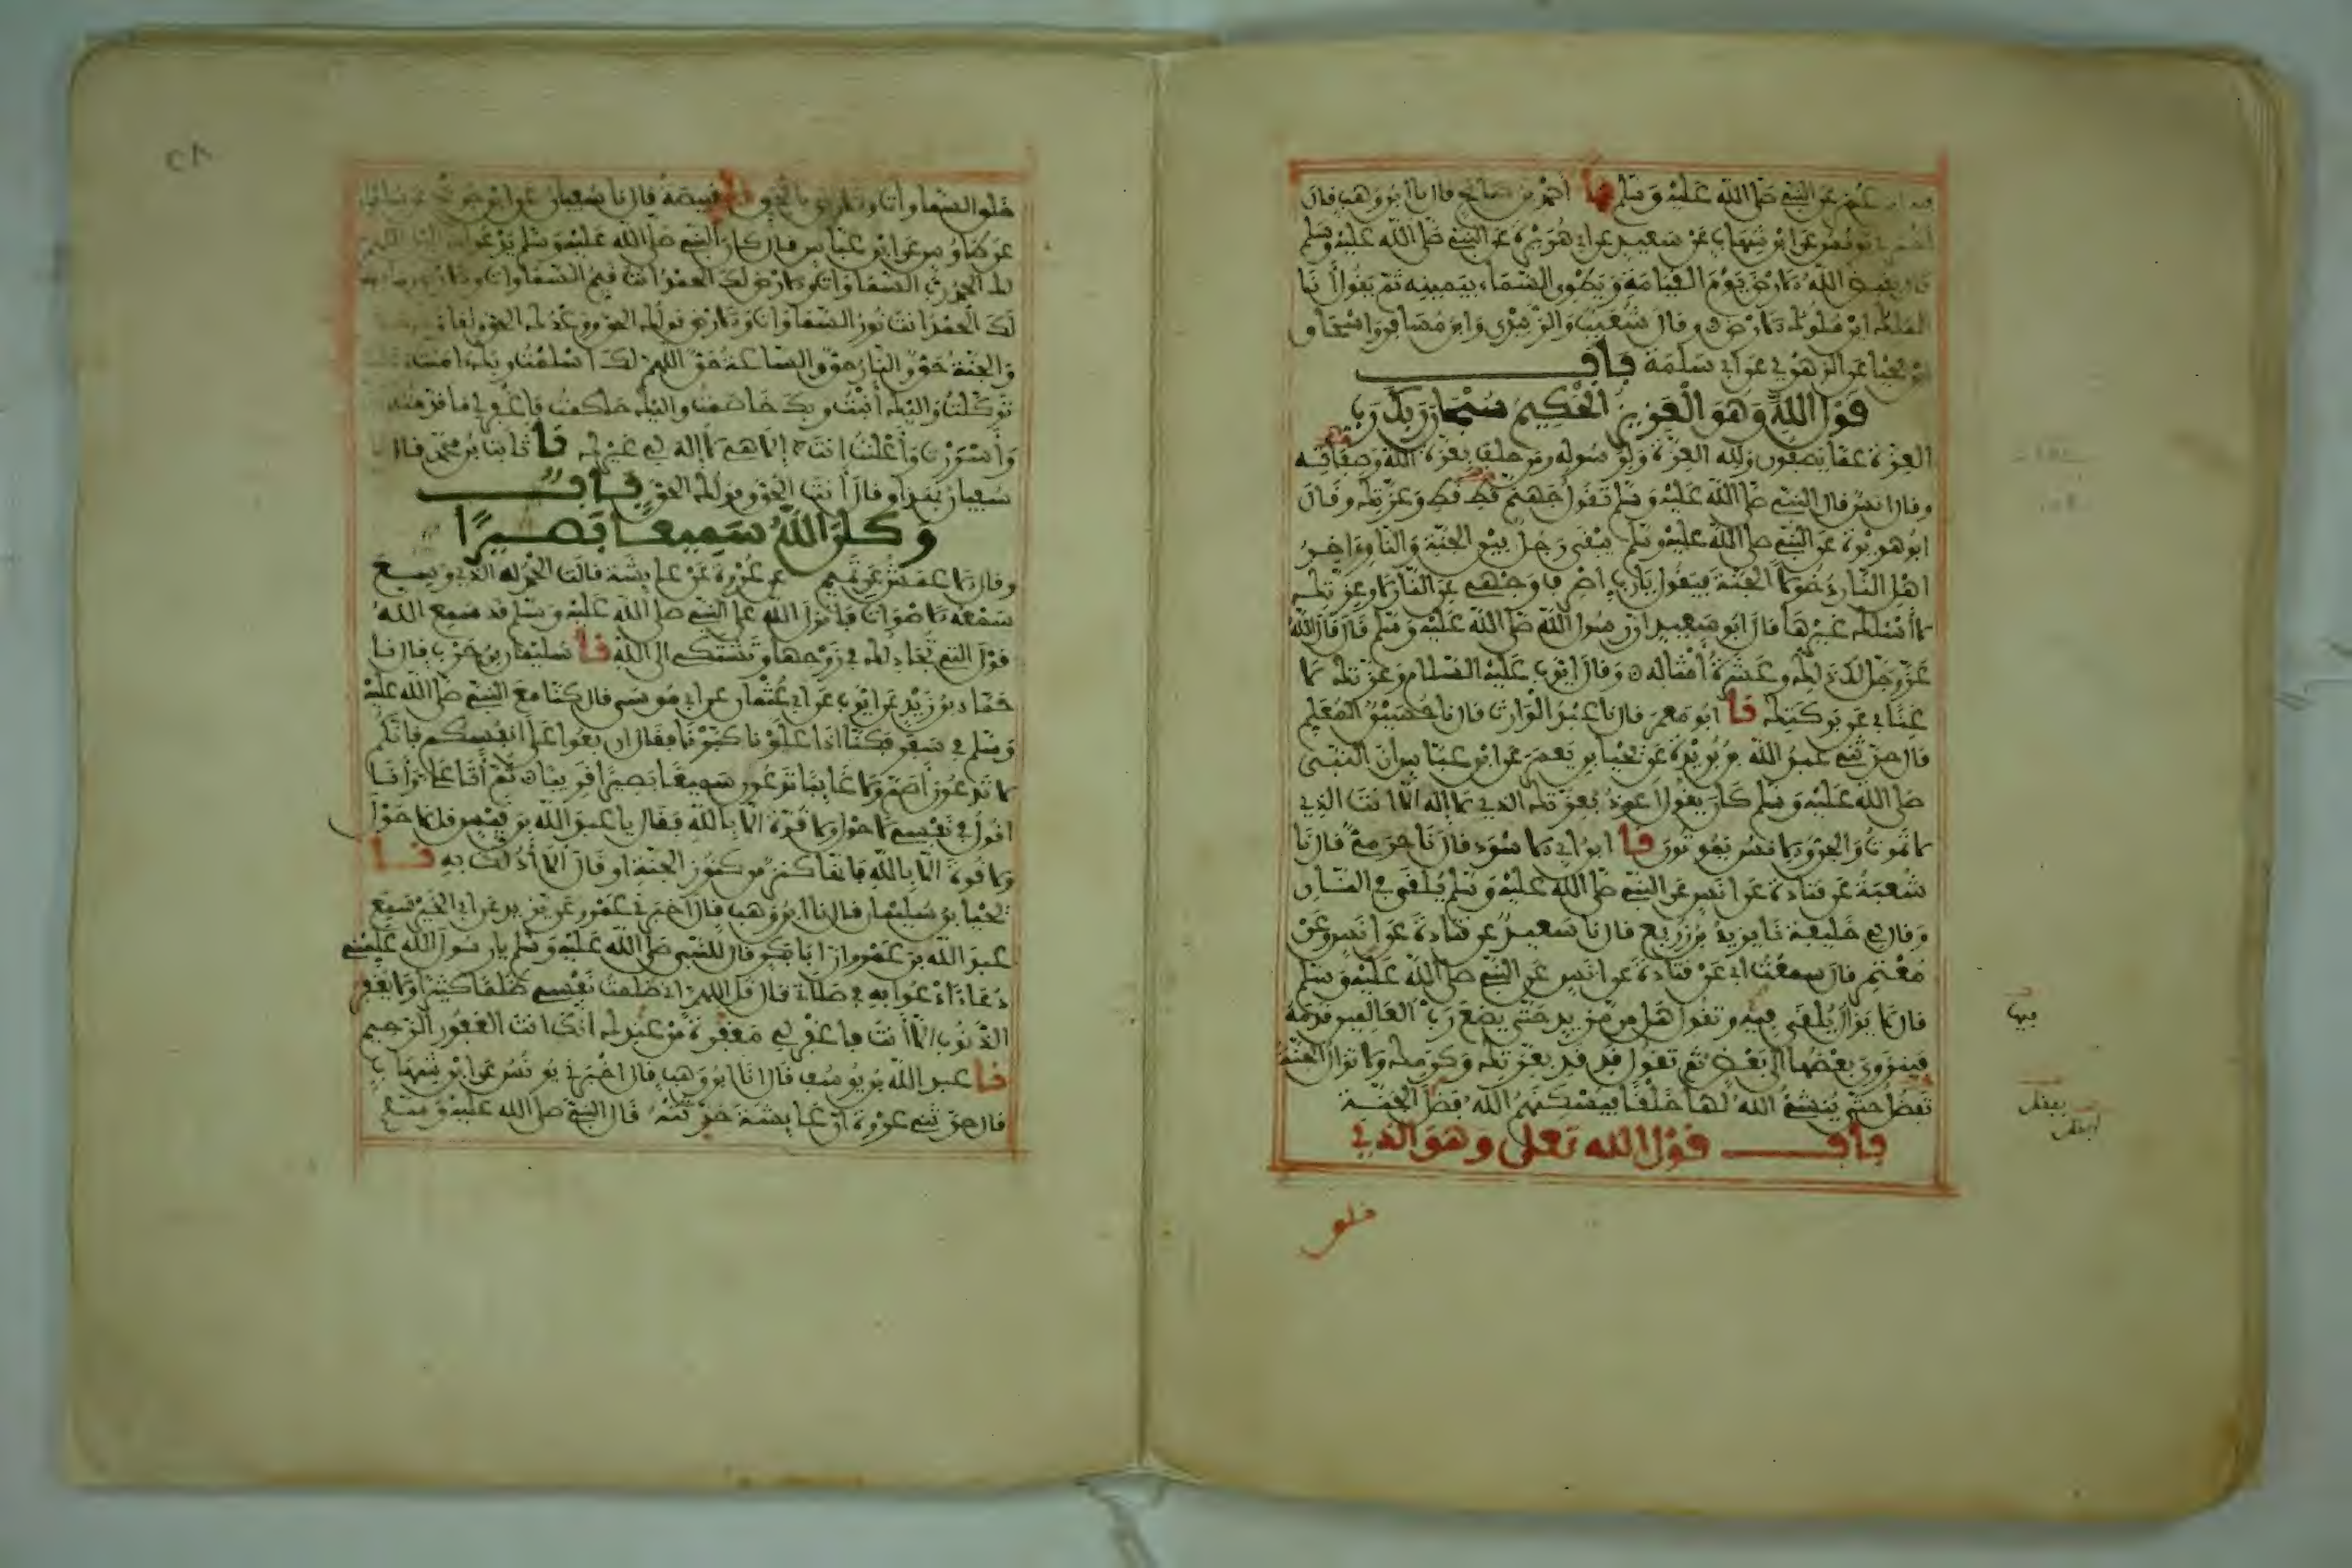 عن النبي صلى الله عليه وسلم نا احمد بن صالح قال نا ابن وهب قال
يونس عن ابن شهاب عن سعيد عن ابي هريرة عن النبي صلى الله عليه وسلم
قال يقبض الله الارض يوم القيامة ويطوي السماء بيمينه ثم يقول انا
الملك اين ملوك الارض وقال شعيب والزبيدي وابن مسافر واسحاق
بن يحيا عن الزهري عن ابي سلمة باب
قول الله وهو العزيز الحكيم سبحان ربك رب
العزة عما يصفون ولله العزة ولرسوله ومن حلف بعزة الله وصفاته
وقال انس قال النبي صلى الله عليه وسلم تقول جهنم قط قط وعزتك وقال
ابو هريرة عن النبي صلى الله عليه وسلم يبقى رجل بين الجنة والنار اخر
اهل النار دخولا الجنة فيقول يارب اصرف وجهي عن النار لا وعزتك
لا اسئلك غيرها قال ابو سعيد ان رسول الله صلى الله عليه وسلم قال قال الله
عز وجل لك ذلك وعشرة امثاله وقال ايوب عليه السلام وعزتك لا
غنا بي عن بركتك نا ابو معمر قال نا عبد الوارث قال نا حسين المعلم
قال حدثني عبد الله بن بريدة عن يحيا بن يعمر عن ابن عباس ان النبي
صلى الله عليه وسلم كان يقول اعوذ بعزتك الذي لا اله الا انت الذي
لا تموت والجن والانس يموتون نا ابن ابي الاسود قال نا حرمي قال نا
شعبة عن قتادة عن انس عن النبي صلى الله عليه وسلم يلقى في النار
وقال لي خليفة نا يزيد بن زريع قال نا سعيد عن قتادة عن انس وعن
معتمر قال سمعت ابي عن قتادة عن انس عن النبي صلى الله عليه وسلم
قال لا يزال يلقى فيه وتقول هل من مزيد حتى يضع رب العالمين قدمه
فينزوي بعضها الى بعض ثم تقول قد قد بعزتك وكرمك ولا تزال الجنة
تفضل حتى ينشئ الله لها خلقا فيسكنهم الله فضل الجنة
باب قول الله تعلى وهو الذي
خلق
فيها
خلق السماوات والارض بالحق نا قبيصة قال نا سفيان عن ابن جريج عن سليمان
عن طاوس عن ابن عباس قال كان النبي صلى الله عليه وسلم يدعو من الليل اللهم
لك الحمد رب السماوات والارض لك الحمد انت قيم السماوات والارض
لك الحمد انت نور السماوات والارض قولك الحق ووعدك الحق ولقاؤك
والجنة حق والنار حق والساعة حق اللهم لك اسلمت وبك امنت
توكلت واليك انبت وبك خاصمت واليك حاكمت فاغفر لي ما قدمت
واسررت واعلنت انت الاهي لا اله لي غيرك نا ثابت بن محمد قال نا
سفيان بهذا وقال انت الحق وقولك الحق باب
وكان الله سميعا بصيرا
وقال الاعمش عن تميم عن عروة عن عايشة قالت الحمد لله الذي وسع
سمعه الاصوات فانزل الله على النبي صلى الله عليه وسلم قد سمع الله
قول التي تجادلك في زوجها وتشتكي الى الله نا سليمان بن حرب قال نا
حماد بن زيد عن ايوب عن ابي عثمان عن ابي موسى قال كنا مع النبي صلى الله عليه
وسلم في سفر فكنا اذا علونا كبرنا فقال اربعوا على انفسكم فانكم
لا تدعون اصم ولا غايبا تدعون سميعا بصيرا قريبا ثم اتا علي وانا
اقول في نفسي لا حول ولا قوة الا بالله فقال يا عبد الله بن قيس قل لا حول
ولا قوة الا بالله فانها كنز من كنوز الجنة او قال الا ادلك به نا
يحيا بن سليمان قال نا ابن وهب قال اخبرني عمرو عن يزيد عن ابي الخير سمع
عبد الله بن عمرو ان ابا بكر قال للنبي صلى الله عليه وسلم يا رسول الله علمني
دعاء ادعوا به في صلاتي قال قل اللهم اني ظلمت نفسي ظلما كثيرا ولا يغفر
الذنوب الا انت فاغفر لي مغفرة من عندك انك انت الغفور الرحيم
نا عبد الله بن يوسف قال انا ابن وهب قال اخبرني يونس عن ابن شهاب
قال حدثني عروة ان عايشة حدثته قال النبي صلى الله عليه وسلم